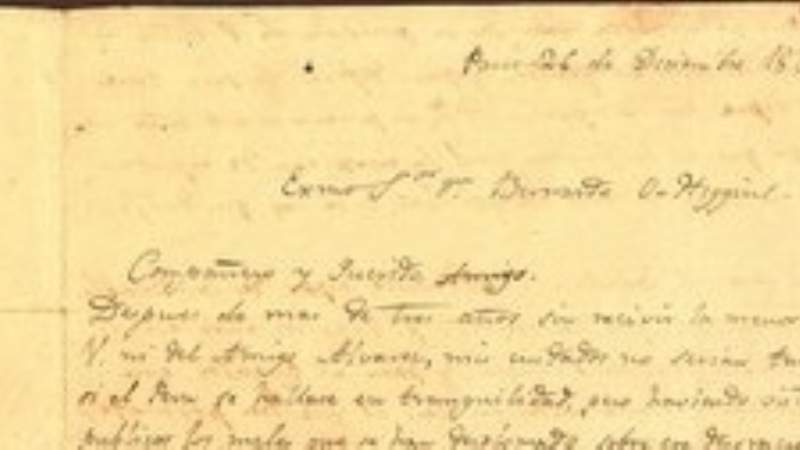 Paris 26 de Diciembre 18
Exmo Sor Dn Bernardo O-Higgins.
Compañero y Querido Amigo.
Despues de mas de tres años sin recivir la menor
V. ni del Amigo Alvarez, mis cuidados no serian
si el Peru se hallase en tranquilidad, pero haviendo
publicos los males que se han desplomado sobre